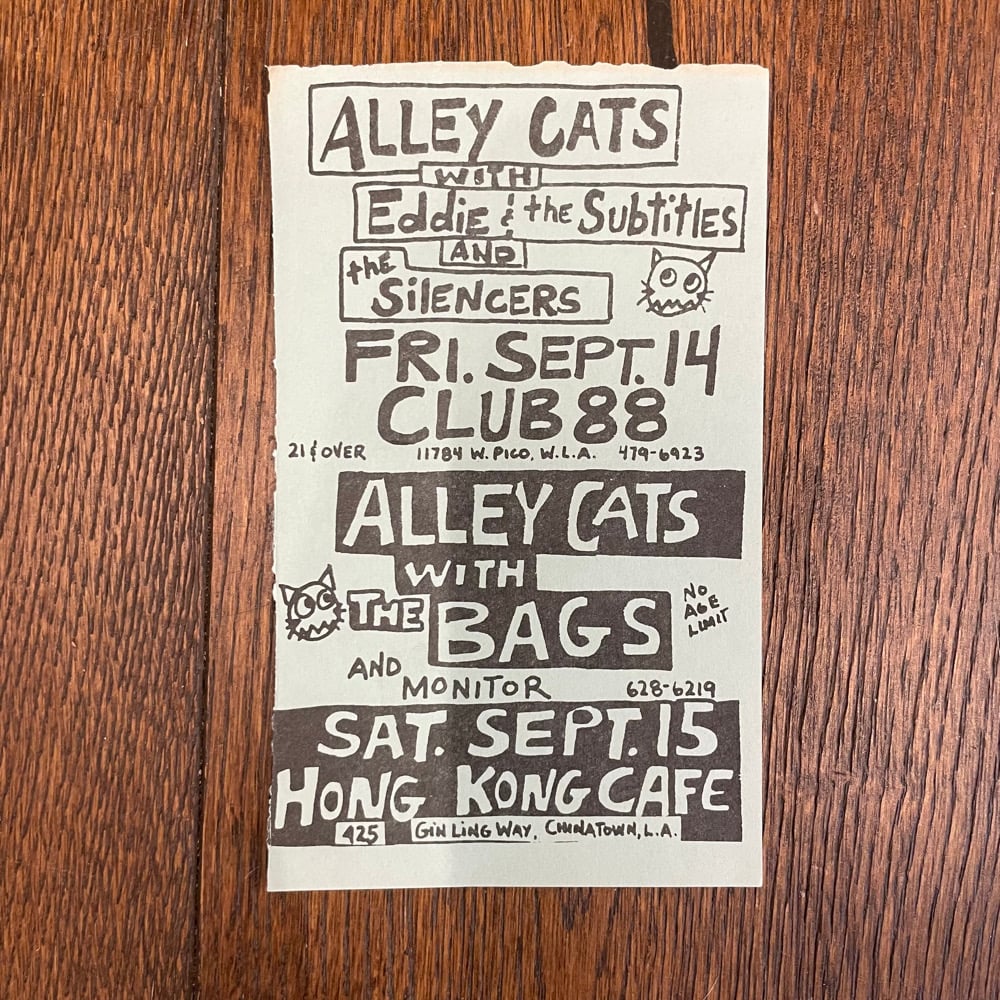 ALLEY CATS
WITH
Eddie & the Subtitles
AND
the
SiLENCERS
FRI. SEPT. 14
CLUB 88
21 & OVER 11784 W. PICO, W.L.A. 479-6923
ALLEY CATS
WITH
THE BAGS
NO
AGE
LIMIT
AND
MONITOR 628-6219
SAT. SEPT. 15
HONG KONG CAFE
425 GiN LiNG WAY, CHINATOWN, L.A.